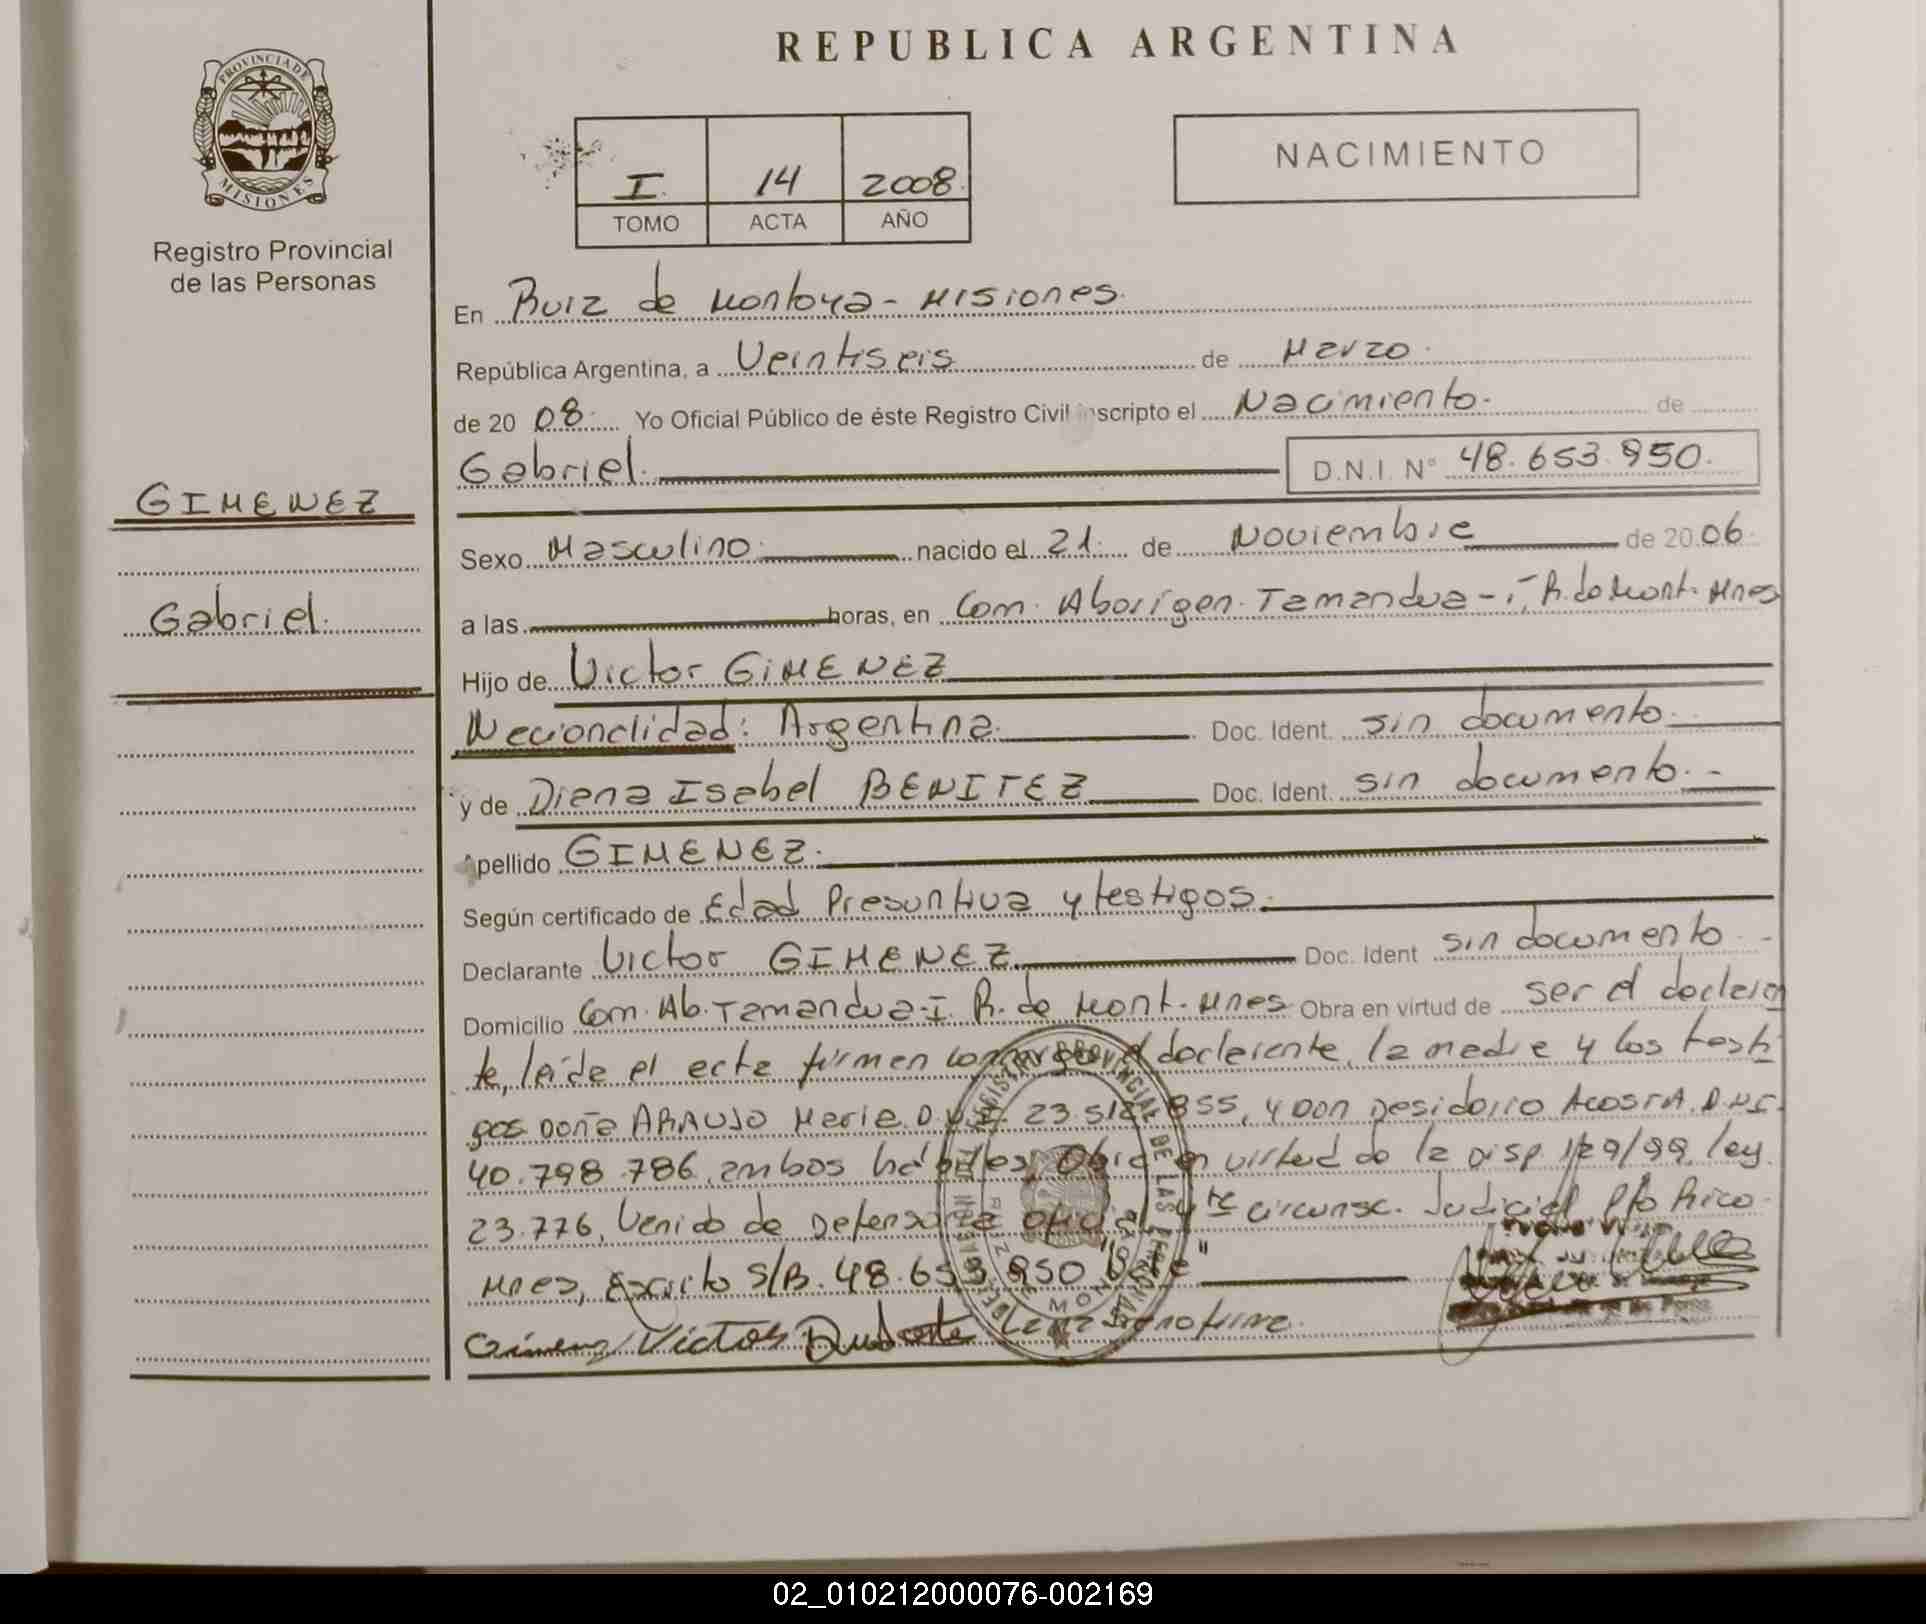 REPUBLICA ARGENTINA
PROVINCIA DE
MISIONES
Registro Provincial
de las Personas
I. 14 2008.
TOMO ACTA AÑO
NACIMIENTO
En Ruiz de Montoya - Misiones.
República Argentina, a Veintiseis de Marzo.
de 20 08. Yo Oficial Público de éste Registro Civil inscripto el Nacimiento. de
Gabriel. D.N.I. N° 48.653.950.
GIMENEZ
Gabriel.
Sexo Masculino. nacido el 21. de Noviembre de 20 06.
a las horas, en Com. Aborígen. Tamandua-i, R. de Mont. Mnes
Hijo de Victor GIMENEZ
Nacionalidad: Argentina. Doc. Ident. sin documento.
y de Diana Isabel BENITEZ Doc. Ident. sin documento. -
Apellido GIMENEZ.
Según certificado de Edad Presuntiva y testigos.
Declarante Victor GIMENEZ Doc. Ident sin documento -
Domicilio Com. Ab. Tamandua-I. R. de Mont. Mnes Obra en virtud de ser el declaran
te, leída el acta firman conmigo el declarante, la madre y los testi
gos Doña ARAUJO Maria D.N.I. 23.512.855, y Don Desidorio ACOSTA. D.N.I.
40.798.786, ambos hábiles, Obra en virtud de la Disp. 129/99, ley
23.776, Venido de Defensoria Oficial 4ta circunsc. Judicial Pto Rico.
Mnes, Escrito S/B. 48.653.950 "Vale"
Gimenez Victor